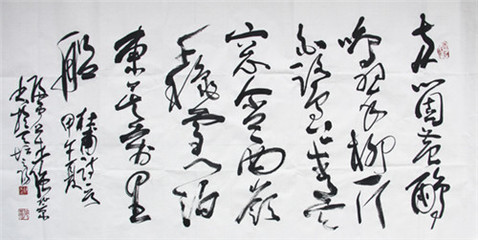 两箇黄鹂
鸣翠柳一行
白鹭上青天
窗含西嶺
千秋雪门泊
東吴萬里
船
杜甫诗一首
甲午夏